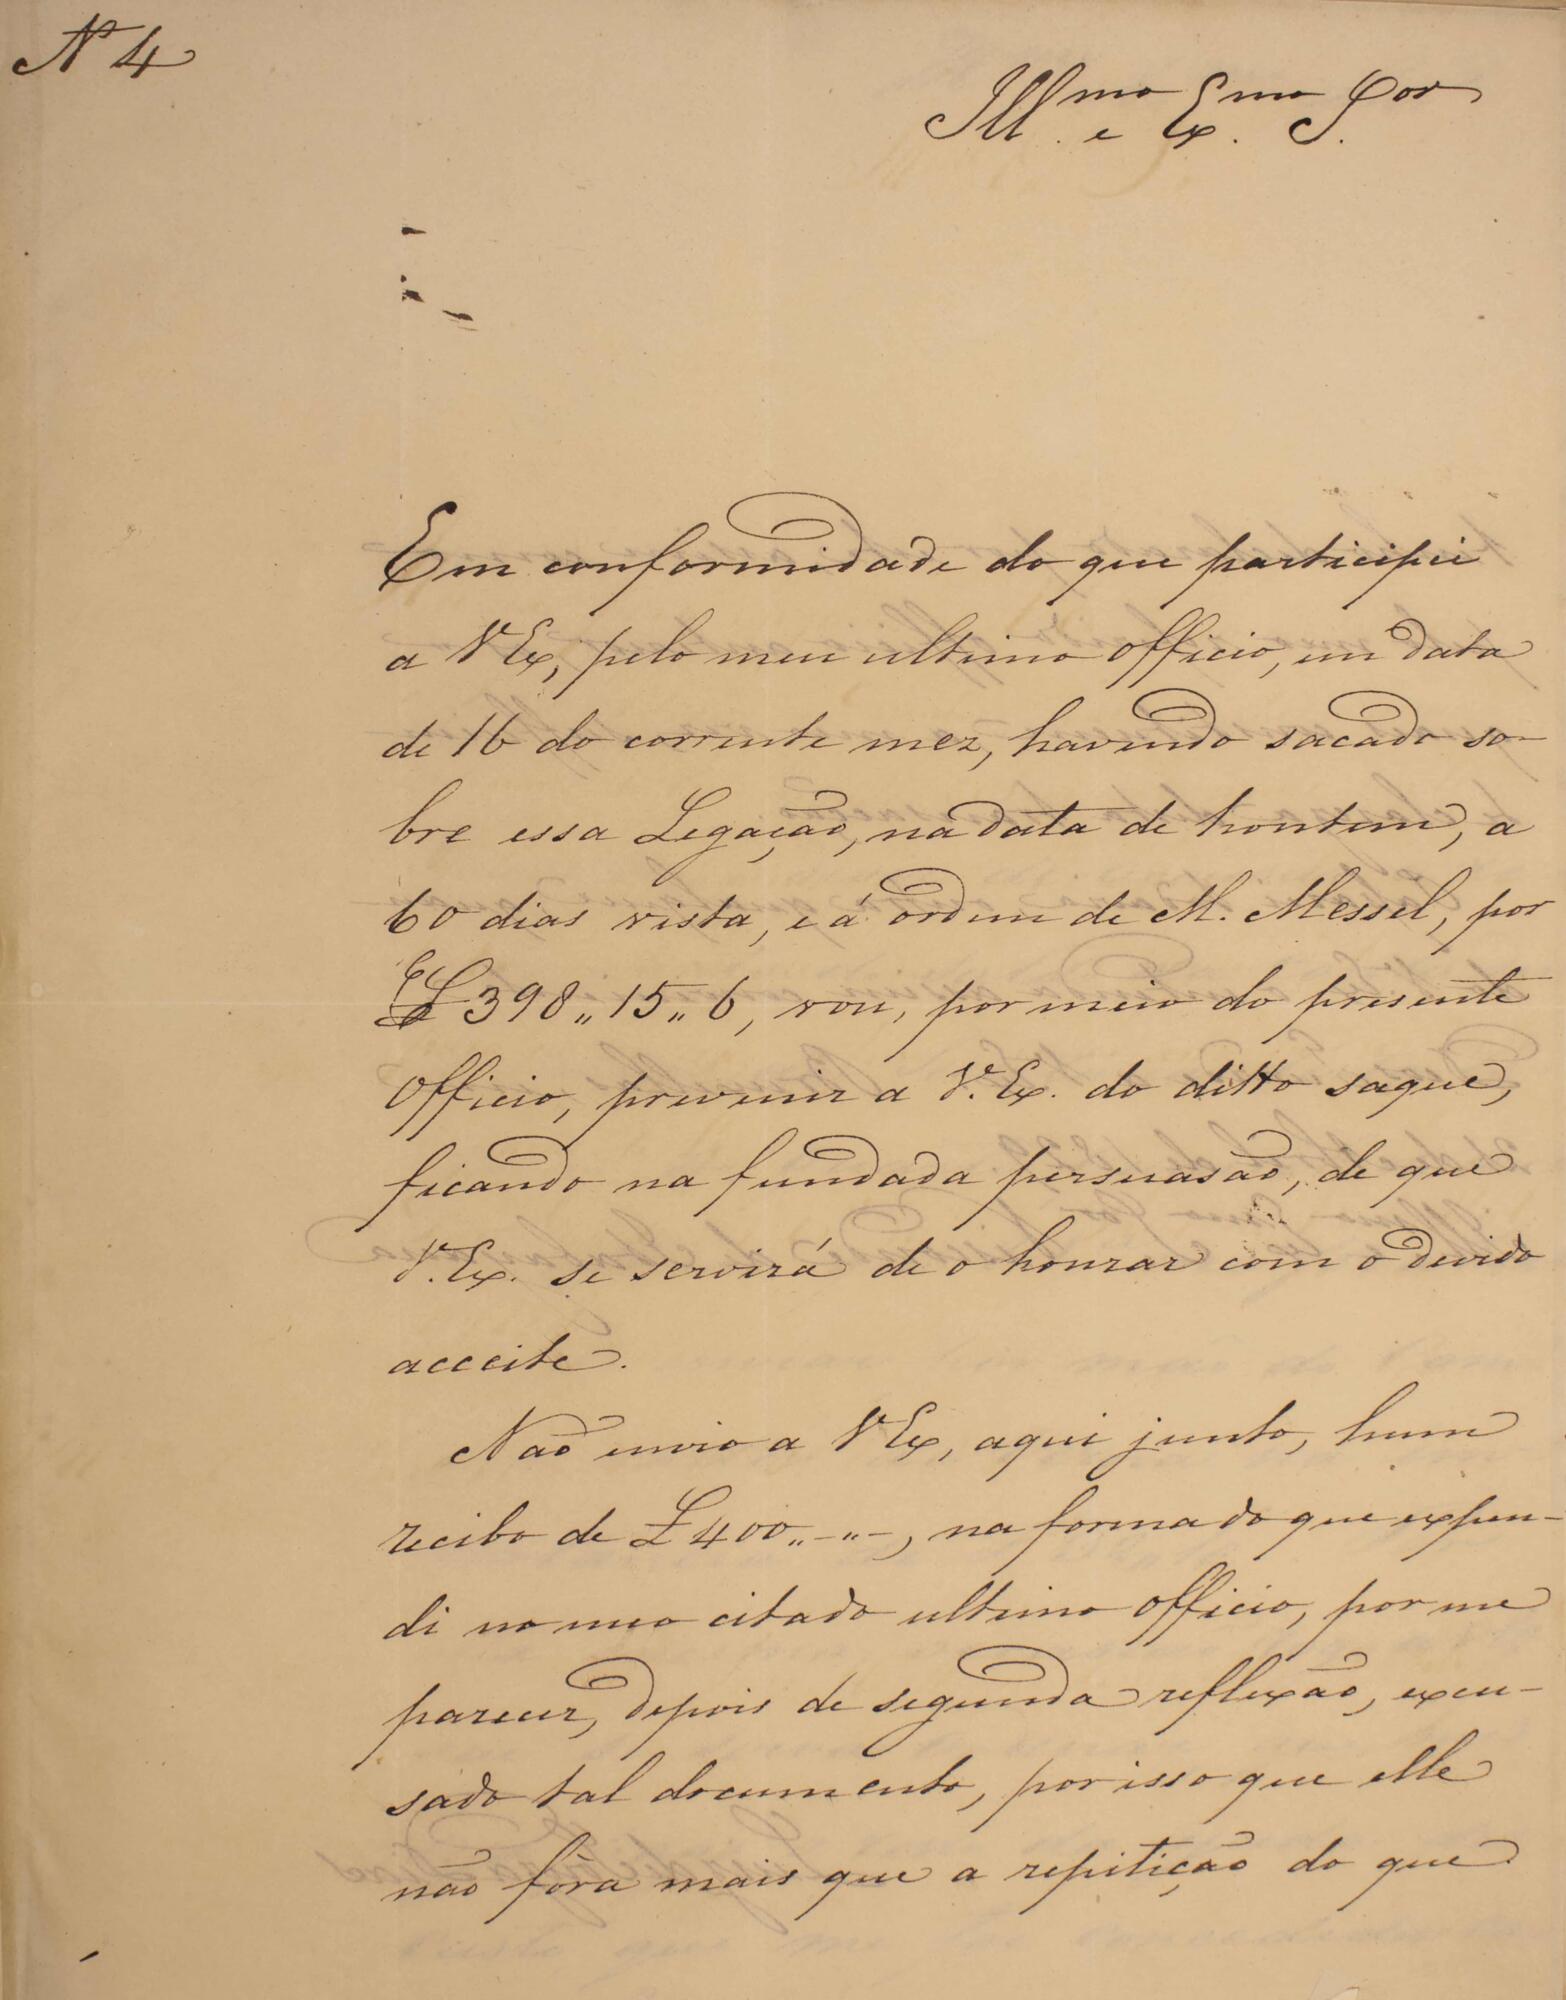 Nº 4
Ill.mo e Ex.mo S.or
Em conformidade do que participei
a V Ex, pelo meu ultimo officio, em data
de 16 do corrente mez, havendo sacado so-
bre essa Legação, na data de hontem, a
60 dias vista, e á ordem de M. Messel, por
£ 398„15„6, vou, por meio do presente
Officio, prevenir a V. Ex. do ditto saque,
ficando na fundada persuasão, de que
V. Ex. se servirá de o honrar com o devido
acceite.
Não envio a V Ex, aqui junto, hum
recibo de £ 400„-„-, na forma do que expen-
di no meo citado ultimo officio, por me
parecer, depois de segunda reflexão, excu-
sado tal documento, por isso que elle
não fôra mais que a repitição do que